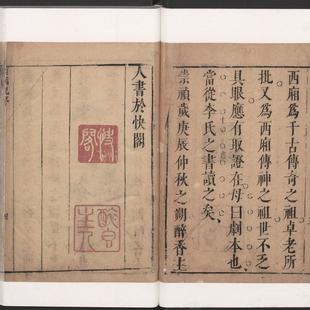 西廂為千古傳奇之祖卓老所
批又為西廂傳神之祖世不乏
具眼應有取證在毋曰劇本也
當從李氏之書讀之矣
崇禎歲庚辰仲秋之朔醉香主
人書於快閣
快閣